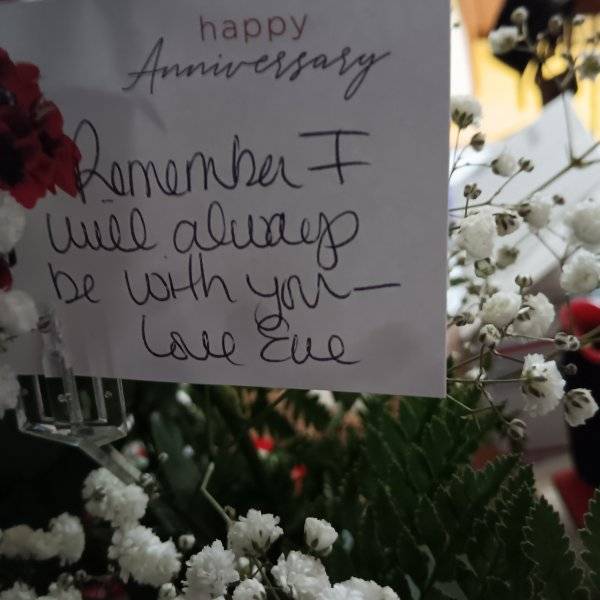 happy
Anniversary
Remember I
will always
be with you—
Love Eve